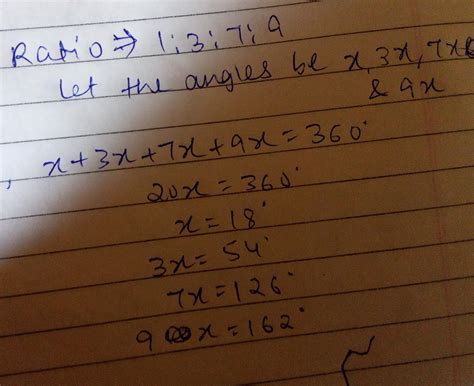 Ratio ⇒ 1:3:7:9
Let the angles be x, 3x, 7x
& 9x
x+3x+7x+9x=360°
20x=360°
x=18°
3x=54°
7x=126°
9x=162°